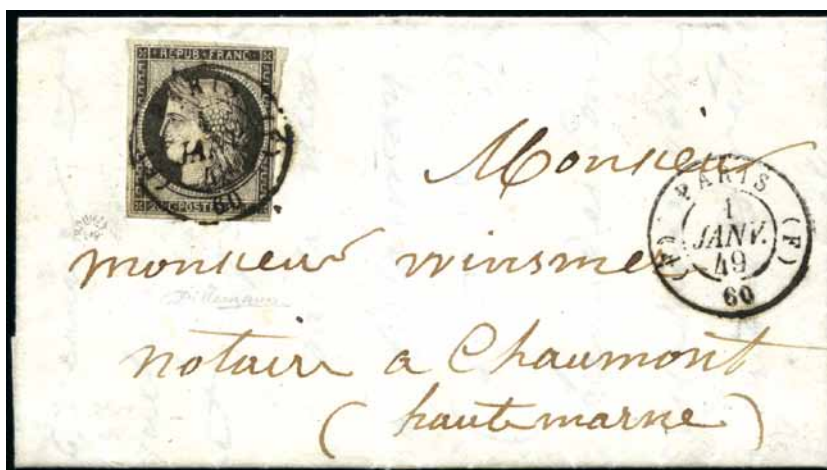 REPUB. FRANC.
PARIS
JANV.
49
60
20 C. POSTES
Monsieur
PARIS (F)
1
JANV.
49
60
monsieur winsmer
notaire a Chaumont
(haute marne)